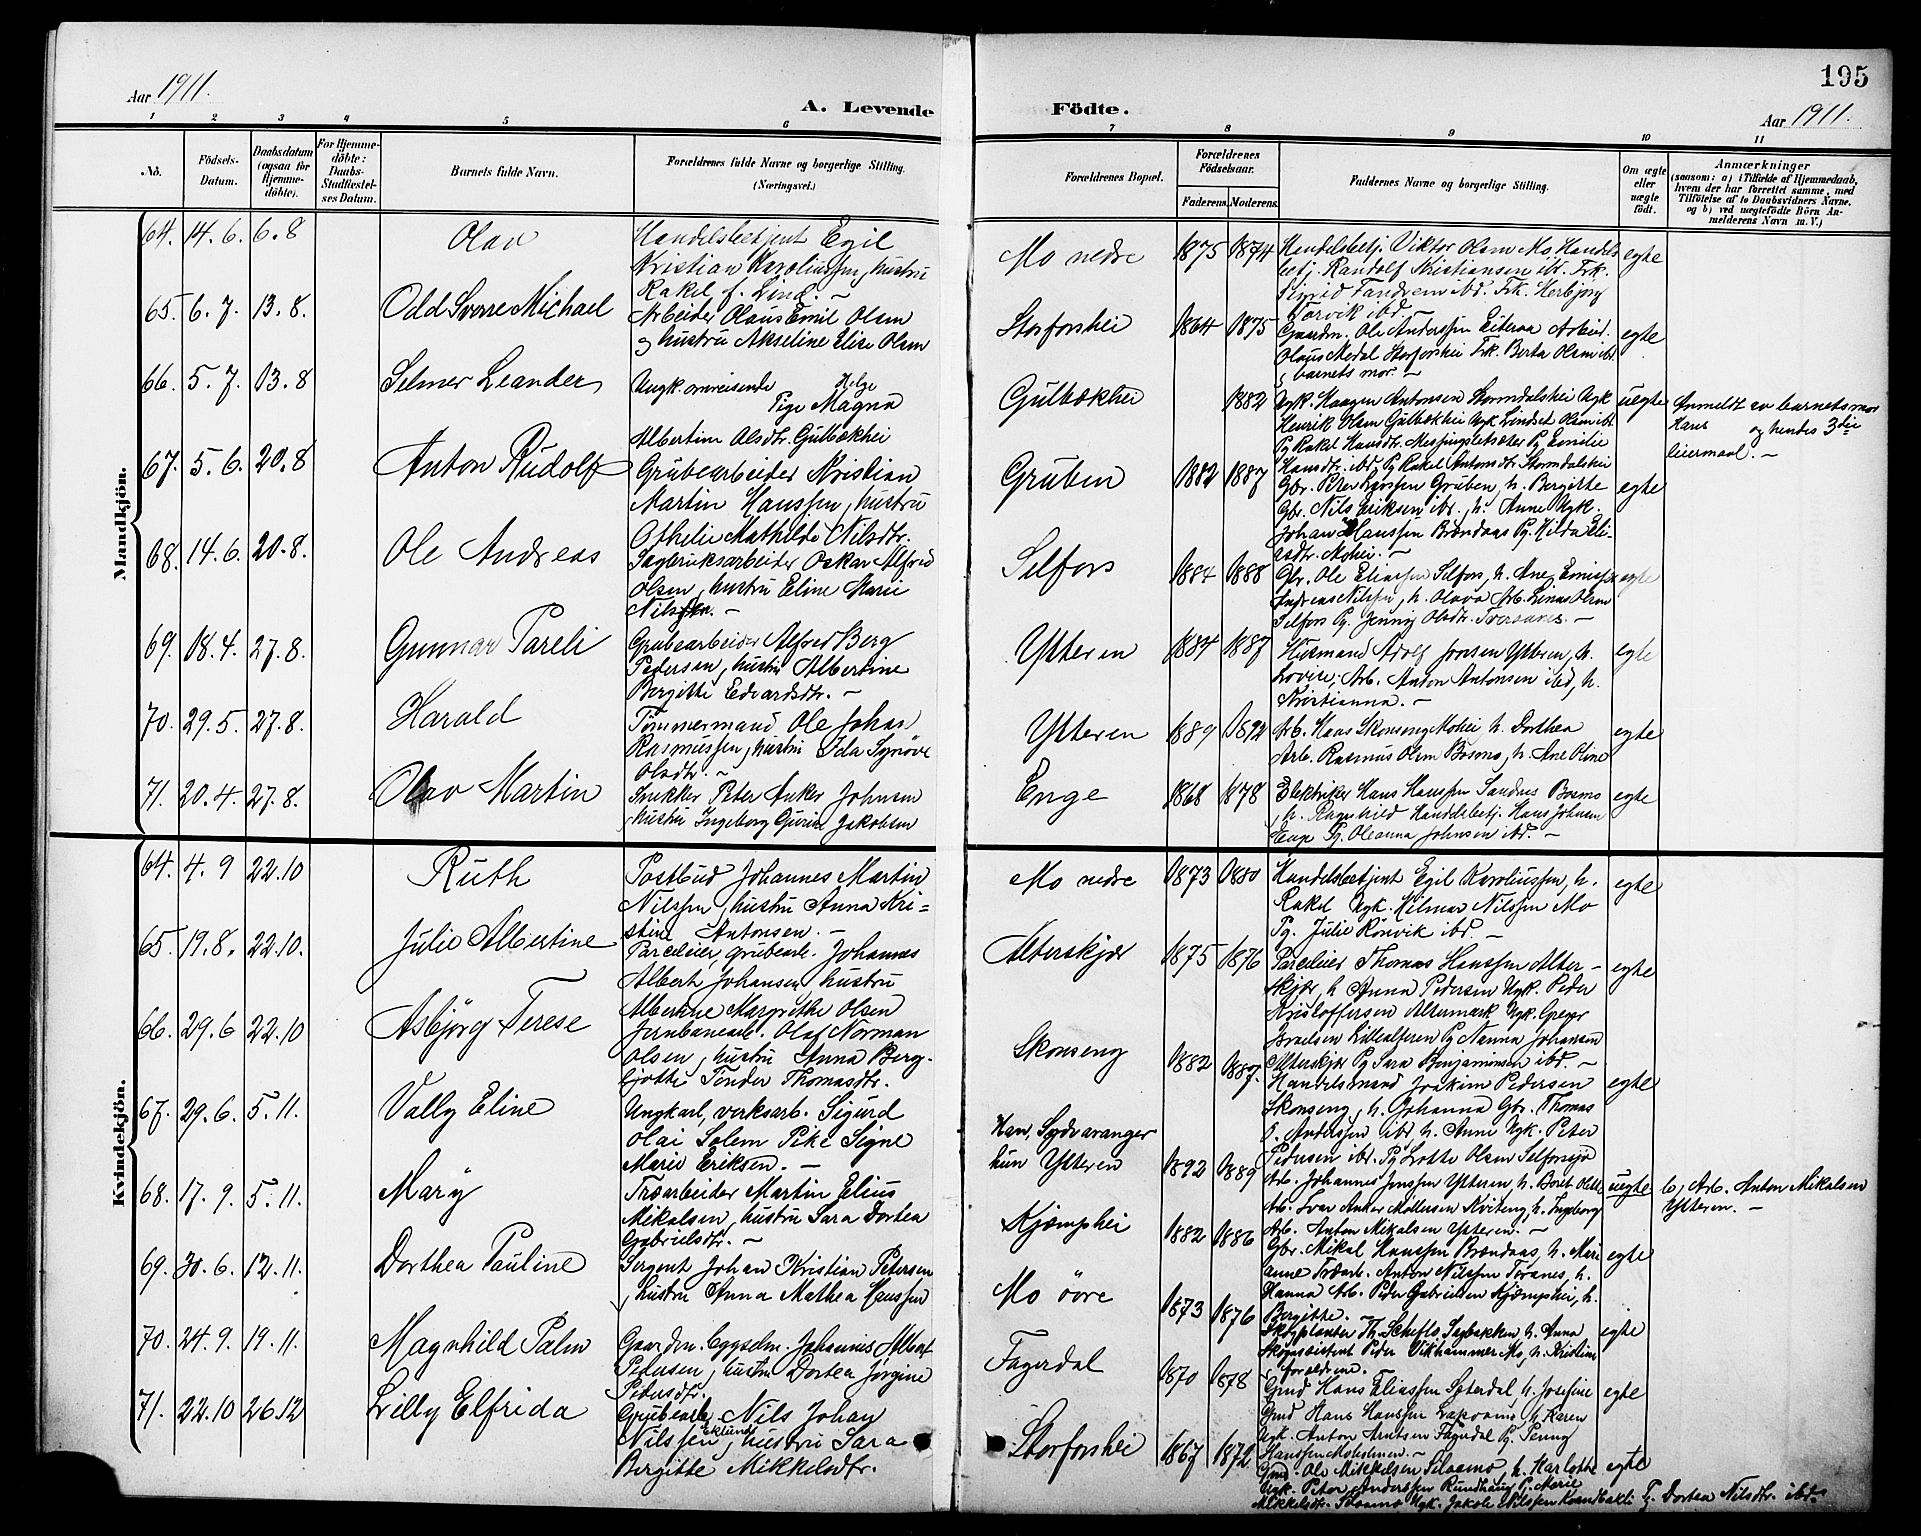 195
Aar 1911.
A. Levende Födte.
Aar 1911.
1 2 3 4 5 6 7 8 9 10 11
No.
Födsels-Datum.
Daabsdatum (ogsaa for Hjemmedöbte).
For Hjemmedöbte: Daabs-Stadfæstelses Datum.
Barnets fulde Navn.
Forældrenes fulde Navne og borgerlige Stilling. (Næringsvei.)
Forældrenes Bopæl.
Forældrenes Födselsaar.
Faderens. Moderens.
Faddernes Navne og borgerlige Stilling.
Om ægte eller uægte födt.
Anmærkninger
(saasom: a) i Tilfælde af Hjemmedaab, hvem der har forrettet samme, med Tilföielse af to Daabsvidners Navne, og b) ved uægtefödte Börn Anmelderens Navn m. V.)
Mandkjön.
64. 14. 6. 6. 8 Olav
Handelsbetjent Egil
Kristian Karoliussen, hustru
Rakel f. Lind. –
Mo nedre 1875 1874
Handelsbetj. Viktor Olsen Mo, Handels
betj. Randolf Kristiansen ibd. Frk.
Sigrid Tandrem ibd. Frk. Herbjørg
Torvik ibd. –
egte
65. 6. 7. 13. 8. Odd Sverre Michael
Arbeider Olaus Emil Olsen
og hustru Akseline Elise Olsen
Storforshei 1864 1875
Gaardm. Ole Anderssen Eiteraa Arbeid.
Olaus Medal Storforshei Frk. Berta Olsen ibd.
og barnets mor. –
egte
66. 5. 7. 13. 8 Selmer Leander
Ungk. omreisende Helge
Pige Magna
Albertine Olsdtr. Gulbækhei
Gulbækhei 1882
Ugk. Haagen Antonsen Stormdalshei Ugk
Henrik Olsen Gulbækhei Ugk Lindset Olsen ibd.
Pg Rakel Hansdtr. Messingsletsæter Pg Emilie
Hansdtr. ibd. Pg Rakel Antonsdtr Stormdalshei
uegte
Anmeldt av barnets mor
Hans og hendes 3die
leiermaal. –
67. 5. 6. 20. 8 Anton Rudolf
Grubearbeider Kristian
Martin Hanssen, hustru
Othelie Mathilde Nilsdtr.
Gruben 1882 1887
Gbr. Peter Larssen Gruben, h. Bergitte
Gbr. Nils Eriksen ibd., h. Anne Ugk.
Johan Hanssen Brændaas Pg. Hilda Eli-
asdtr. Mohei. –
egte
68. 14. 6. 20. 8. Ole Andreas
Sagbruksarbeider Oskar Alfred
Olsen, hustru Eline Marie
Nilsdtr. –
Selfors 1884 1888
Gbr. Ole Eliassen Selfors, h. Ane, Ernst
Andreas Nilssen, h. Olava Arb. Linus Olsen
Selfors Pg. Jenny Olsdtr. Tveraanes. –
egte
69. 18. 4. 27. 8. Gunnar Pareli
Grubearbeider Alfred Berg
Pedersen, hustru Albertine
Bergitte Edvardsdtr. –
Ytteren 1884 1887
Husmand Adolf Jonsen Ytteren, h.
Lovise, Arb. Anton Antonsen ibd, h.
Kristianna. –
egte
70. 29. 5. 27. 8. Harald
Tømmermand Ole Johan
Rasmussen, hustru Ida Synøve
Olsdtr. –
Ytteren 1889 1892
Arb. Hans Skonseng Mohei h. Dorthea
Arb. Rasmus Olsen Bosmo, h. Ane Oline
egte
71. 20. 4. 27. 8. Olav Martin
Snekker Peter Anker Johnsen
, hustru Ingeborg Gurine Jakobsen
Enge 1868 1878
Elektriker Hans Hanssen Sandnes Bosmo
, h. Ragnhild Handelsbetj. Hans Johnsen
Enge Pg. Oleanna Johnsen ibd. –
egte
Kvindekjön.
64. 4. 9 22. 10 Ruth
Postbud Johannes Martin
Nilssen, hustru Anna Kri-
stine Antonsen. –
Mo nedre 1873 1880
Handelsbetjent Egil Karoliussen, h.
Rakel Ugk. Hilmar Nilssen Mo
Pg. Julie Ronvik ibd. –
egte
65. 19. 8. 22. 10. Julie Albertine
Parceleier, grubearb. Johannes
Albert Johansen hustru
Albertine Margrethe Olsen
Alterskjær 1875 1876
Parceleier Thomas Hanssen Alter-
skjær, h Anna Pedersen Ugk. Peder
Kristoffersen Altermark Ugk. Greger
Israelsen Lillealteren Pg Nanna Johansen
Alterskjær Pg Sara Benjaminsen ibd. –
egte
66. 29. 6 22. 10 Asbjørg Terese
Jernbanearb. Olaf Norman
Olsen, hustru Anna Berg-
ljotte Tønder Thomasdtr.
Skonseng 1882 1887.
Handelsmand Joakim Pedersen
Skonseng, h. Johanna Gbr. Thomas
J. Anderssen ibd h. Anne Ugk. Peter
Pedersen ibd. Pg Lotte Olsen Selforssjø
egte
67. 29. 6. 5. 11. Vally Eline
Ungkarl, verksarb. Sigurd
Olai Solem Pike Signe
Marie Eriksen. –
Han, Sydvaranger
hun Ytteren 1892 1889
Arb. Johannes Jenssen Ytteren, h. Boret Olette
Arb. Ivar Anker Mollersen Kviteng, h. Ingeborg
Arb. Anton Mikalsen Ytteren. –
uegte
b, Arb. Anton Mikalsen
Ytteren. –
68. 17. 9. 5. 11. Mary
Træarbeider Martin Elius
Mikalsen, hustru Sara Dortea
Gabrielsdtr. –
Kjæmphei 1882 1886
Gbr. Mikal Hanssen Brændaas, h. Mari
anne Træarb. Anton Nilssen Toranes, h.
Hanna Arb. Peder Gabrielsen Kjæmphei, h.
Bergitte. –
egte
69. 30. 6. 12. 11. Dorthea Pauline
Sergent Johan Kristian Petersen
, hustru Anna Mathea Hanssen
Mo øvre 1873 1876
Skogplanter Th. Scheflo, Sagbakken, h. Anna
Skogassistent Peder Vikhammer Mo, h. Kristine
, forældrene. –
egte
70. 24. 9. 19. 11. Magnhild Palm
Gaardm. Johannes Albert
Pedersen, hustru Dortea Jørgine
Pedersdtr.
Fagerdal 1870 1878
Gmd Hans Eliassen Sæterdal, h. Josefine
Gmd Hans Hanssen, h. Karen
Ugk. Anton Arntsen Fagerdal Pg. Penny
Hanssen Moholmen. –
egte
71. 22. 10 26. 12 Lilly Elfrida
Grubearb. Nils Johan
Nilssen Eklund, hustru Sara
Bergitte Mikkelsdtr.
Storforshei 1867 1872
Gmd. Ole Mikkelsen Steromo, h. Karlotte
Ugk. Peter Anderssen Rundhaug Pg. Marie
Mikkelsdtr. Ugk. Jakob Nilssen Pg. Dortea Nilsdtr. ibd.
egte